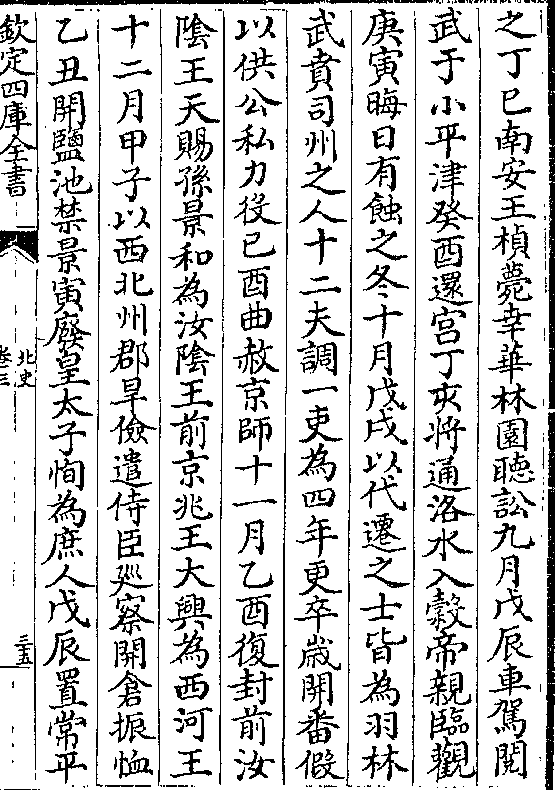 之丁巳南安王楨薨幸華林園聽訟九月戊辰車駕閱
武于小平津癸酉還宮丁亥將通洛水入穀帝親臨觀
庚寅晦日有蝕之冬十月戊戌以代遷之士皆為羽林
武賁司州之人十二夫調一吏為四年更卒歲開番假
以供公私力役己酉曲赦京師十一月乙酉復封前汝
陰王天賜孫景和為汝陰王前京兆王大興為西河王
十二月甲子以西北州郡旱儉遣侍臣廵察開倉振恤
乙丑開鹽池禁景寅廢皇太子恂為庶人戊辰置常平
欽定四庫全書
北史
卷三
三五